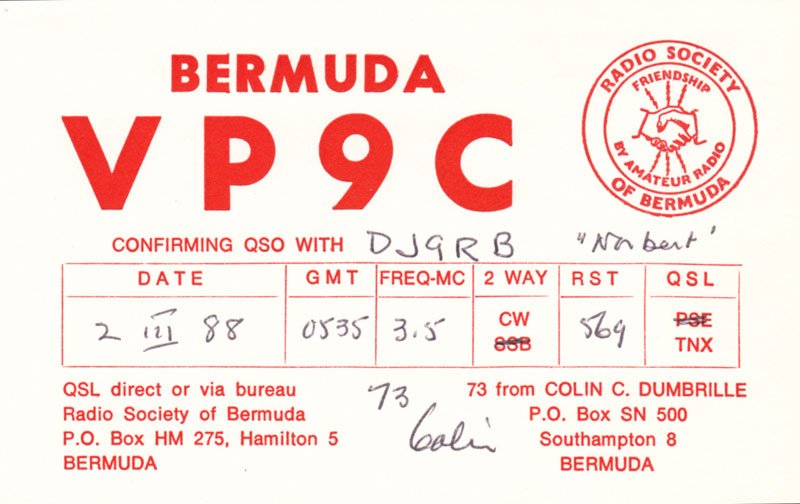 BERMUDA
VP9C
RADIO SOCIETY OF BERMUDA
FRIENDSHIP
BY AMATEUR RADIO
CONFIRMING QSO WITH DJ9RB "Norbert"
DATE GMT FREQ-MC 2 WAY RST QSL
2 III 88 0535 3.5 CW SSB 569 PSE TNX
QSL direct or via bureau
Radio Society of Bermuda
P.O. Box HM 275, Hamilton 5
BERMUDA
73
Colin
73 from COLIN C. DUMBRILLE
P.O. Box SN 500
Southampton 8
BERMUDA